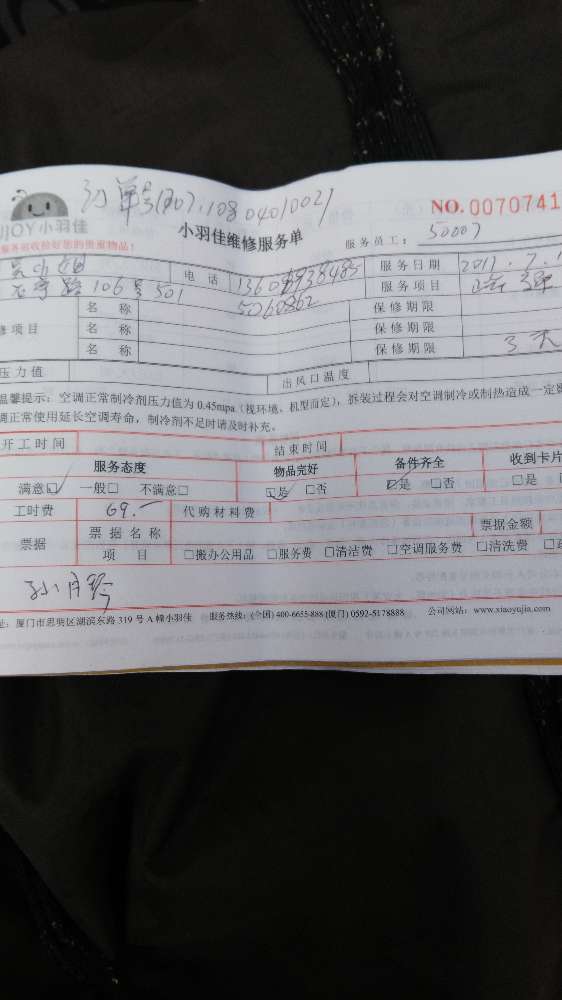 订单号
NO. 0070741
IJOY小羽佳
小羽佳维修服务单
服务员工: 50007
服务前收拾好您的贵重物品!
电 话
服务日期 2017.7.1
路 106号 501
5060862
服务项目
修项目
名 称
保修期限
名 称
保修期限
名 称
保修期限 3天
压力值
出风口温度
温馨提示:空调正常制冷剂压力值为 0.45mpa(视环境、机型而定),拆装过程会对空调制冷或制热造成一定影
调正常使用延长空调寿命,制冷剂不足时请及时补充。
开工时间
结束时间
服务态度
物品完好
备件齐全
收到卡片
满意☑ 一般□ 不满意□
☑是 □否
☑是 □否
□是
工时费 69.—
代购材料费
票据
票 据 名 称
票据金额
项 目
□搬办公用品 □服务费 □清洁费 □空调服务费 □清洗费
址:厦门市思明区湖滨东路 319 号 A 幢小羽佳 服务热线:(全国) 400-6655-888 (厦门) 0592-5178888 公司网站:www.xiaoyujia.com